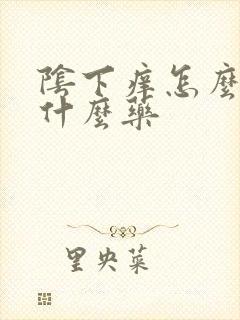 陰下痒怎麼
什麼藥
里央菜